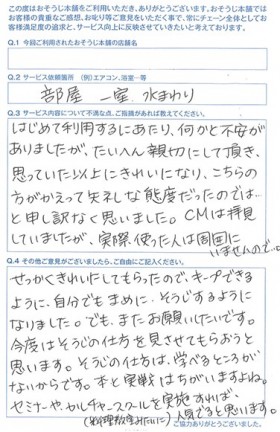 この度はおそうじ本舗をご利用いただき、ありがとうございます。おそうじ本舗では
お客様の貴重なご感想、お叱り等ご意見をいただく事で、常にチェーン全体としてお
客様満足度の追求と、サービス向上に反映させていきたいと考えております。
Q.1 今回ご利用されたおそうじ本舗の店舗名
Q.2 サービス依頼箇所 (例)エアコン、浴室一等
部屋 一室 水まわり
Q.3 サービス内容について不満な点、ご指摘があれば教えてください。
はじめて利用するにあたり、何かと不安が
ありましたが、たいへん親切にして頂き、
思っていた以上にきれいになり、こちらの
方がかえって失礼な態度だったのでは…
と申し訳なく思いました。CMは拝見
していましたが、実際使った人は周囲に
いませんので…。
Q.4 その他ご意見がございましたら、ご自由にご記入ください。
せっかくきれいにしてもらったので、キープできる
ように、自分でもまめに そうじするように
なりました。でも、またお願いしたいです。
今度はそうじの仕方を見させてもらおうと
思います。そうじの仕方は、学べるところが
ないからです。本と実戦はちがいますよね。
セミナーや、カルチャースクールを実施すれば
(料理教室みたいに)人気でると思います。
ご協力ありがとうございました。